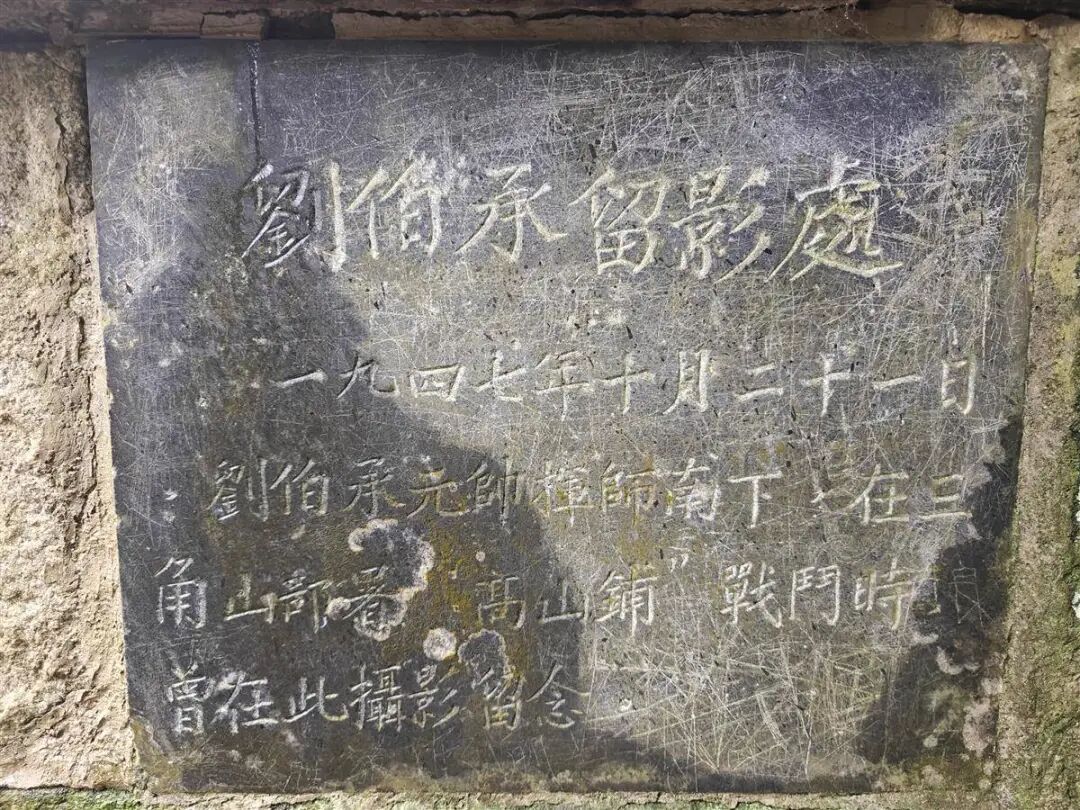 劉伯承留影處
一九四七年十月二十一日
劉伯承元帥揮師南下,在三
角山部署"高山鋪"戰鬥時,
曾在此攝影留念。